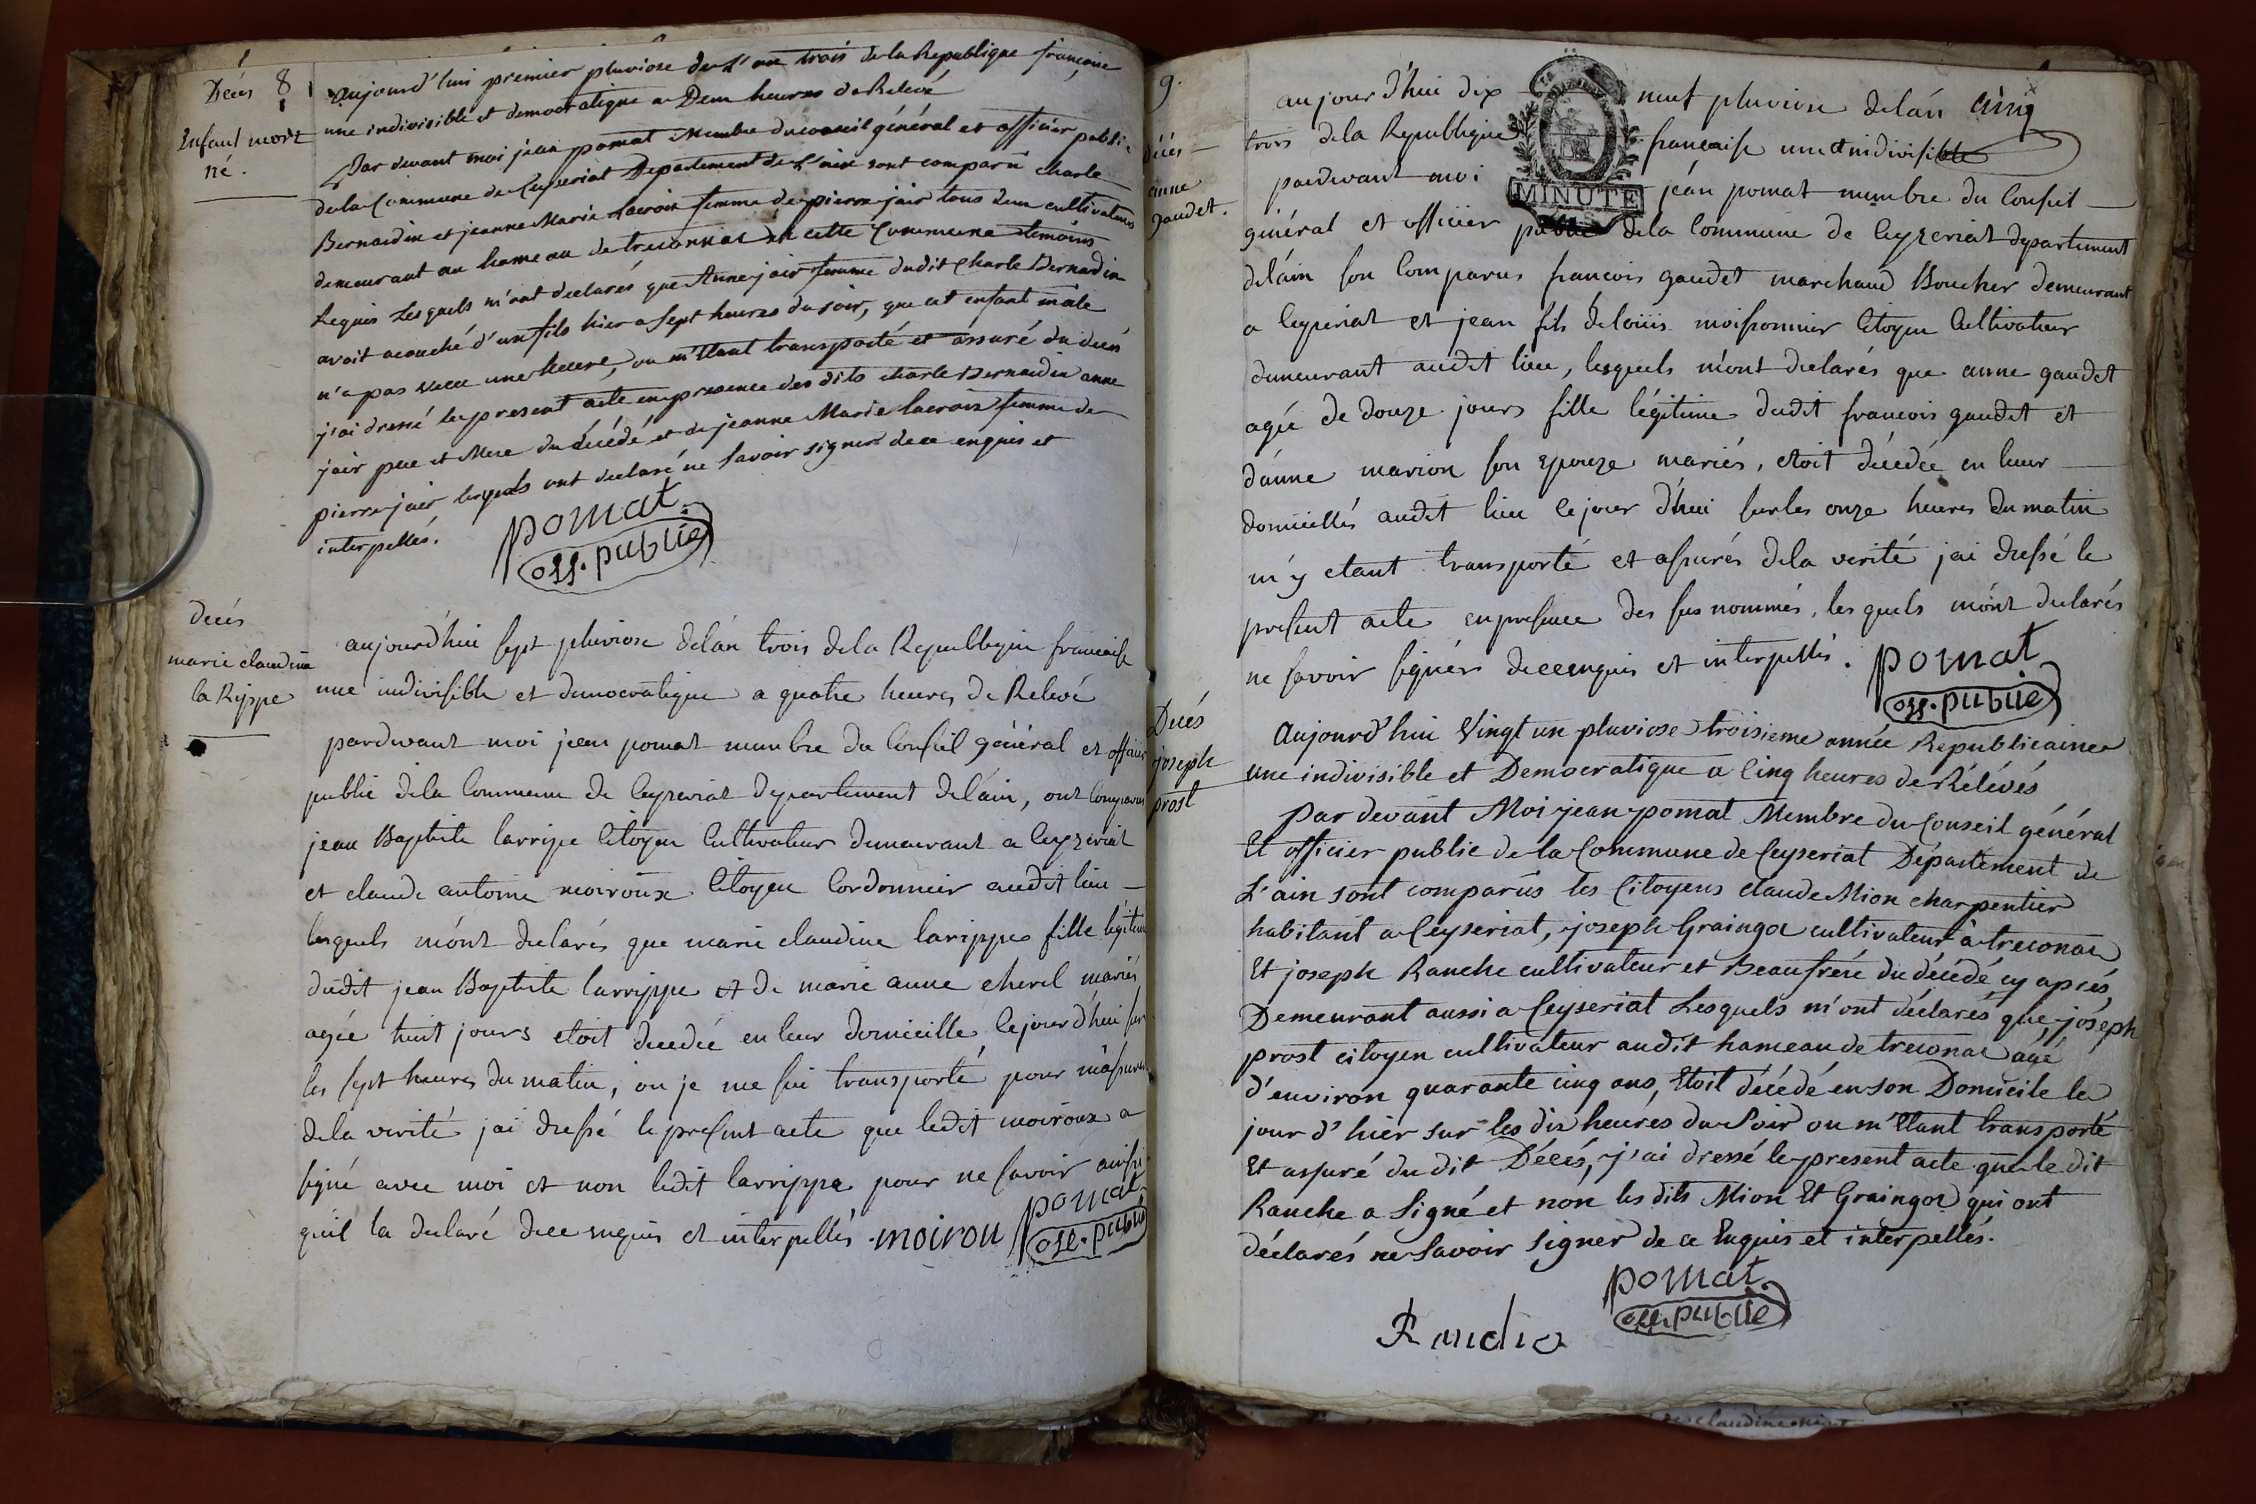 Decés 8
Enfant mort
né.
aujourd'hui premier pluviose de L'an trois de la Republique françoise
une indivisible et democratique a Deux heures de Relevé
Par devant moi jean pomat Membre du conseil général et officier public
de la Commune de Ceyseriat Departement de L'ain sont comparu charle
Bernardin et jeanne Marie Lacroix femme de pierre jair tous deux cultivateurs
demeurant au hameau de treconnas de cette Commune temoins
Requis Lesquels m'ont declarés que Anne jair femme dudit Charle Bernardin
avoit acouché d'un fils hier a sept heures du soir, que cet enfant mâle
n'a pas vecu une heure, ou m'étant transporté et assuré du decés
j'ai dressé le present acte en presence des dits charle Bernardin anne
jair pere et Mere du décédé et de jeanne Marie lacroix femme de
pierre jair lesquels ont declaré ne Savoir signer de ce enquis et
interpellés.
pomat
off. public
decés
marie claudine
la Rippe
aujourd'hui sept pluviose delán trois dela Republique francaise
une indivisible et democratique a quatre heures de Relevé
pardevant moi jean pomat membre du Conseil général et officier
public dela Commune de Ceyseriat departement deláin, ont Comparus
jean Baptiste larripe Citoyen Cultivateur demeurant a Ceyzeriat
et claude antoine moiroux Citoyen Cordonnier audit lieu
lesquels mónt declarés que marie claudine larippe fille légitime
dudit jean Baptiste larrippe et de marie anne cherel mariés
agée huit jours etoit decedée en leur domicille cejour d'hui sur
les sept heures du matin, ou je me sui transporté pour mássurer
dela verité jai dressé le present acte que ledit moiroux a
signé avec moi et non ledit larrippe pour ne savoir ainsi
quil la declaré dece enquis et interpellés. moirou
pomat
off. public
9.
décés
anne
gaudet.
aujourd'hui dix neuf pluviose delán cinq
trois dela Republique française une et indivisible
MINUTE
pardevant moi jéan pomat membre du Conseil
général et officier public dela Commune de Ceyzeriat departement
deláin son Comparus francois gaudet marchand Boucher demeurant
a Ceyseriat et jean fils de louis moissonnier Citoyen Cultivateur
demeurant audit lieu, lesquels mónt declarés que anne gaudet
agée de douze jours fille légitime dudit francois gaudet et
dánne marion son epouze mariés, etoit décédée en leur
domicillés audit lieu cejour d'hui sur les onze heures du matin
m'y etant transporté et assurés dela verité jai dressé le
present acte en presence des sus nommés, lesquels mónt declarés
ne savoir signér dece enquis et interpellés.
pomat
off. public
Decés
joseph
prost
Aujourd'hui Vingt un pluviose troisieme année Republicaine
une indivisible et Democratique a Cinq heures de Rélévés
Par devant Moi jean pomat Membre du Conseil général
Et officier public de la Commune de Ceyseriat Département de
L'ain sont comparûs les Citoyens claude Mion charpentier
habitant a Ceyseriat, joseph Graingor cultivateur à treconas
Et joseph Ranche cultivateur et Beaufrére du décédé cy aprés,
Demeurant aussi a Ceyseriat Lesquels m'ont déclarés que joseph
prost citoyen cultivateur audit hameau de treconas agé
d'environ quarante cinq ans, Etoit décédé en son Domicile le
jour d'hier sur les dix heures du Soir ou m'Etant transporté
Et assuré du dit Décés, j'ai dressé le present acte que le dit
Ranche a Signé et non les dits Mion Et Graingor qui ont
déclarés ne Savoir signer de ce Enquis et interpellés.
pomat
off. public